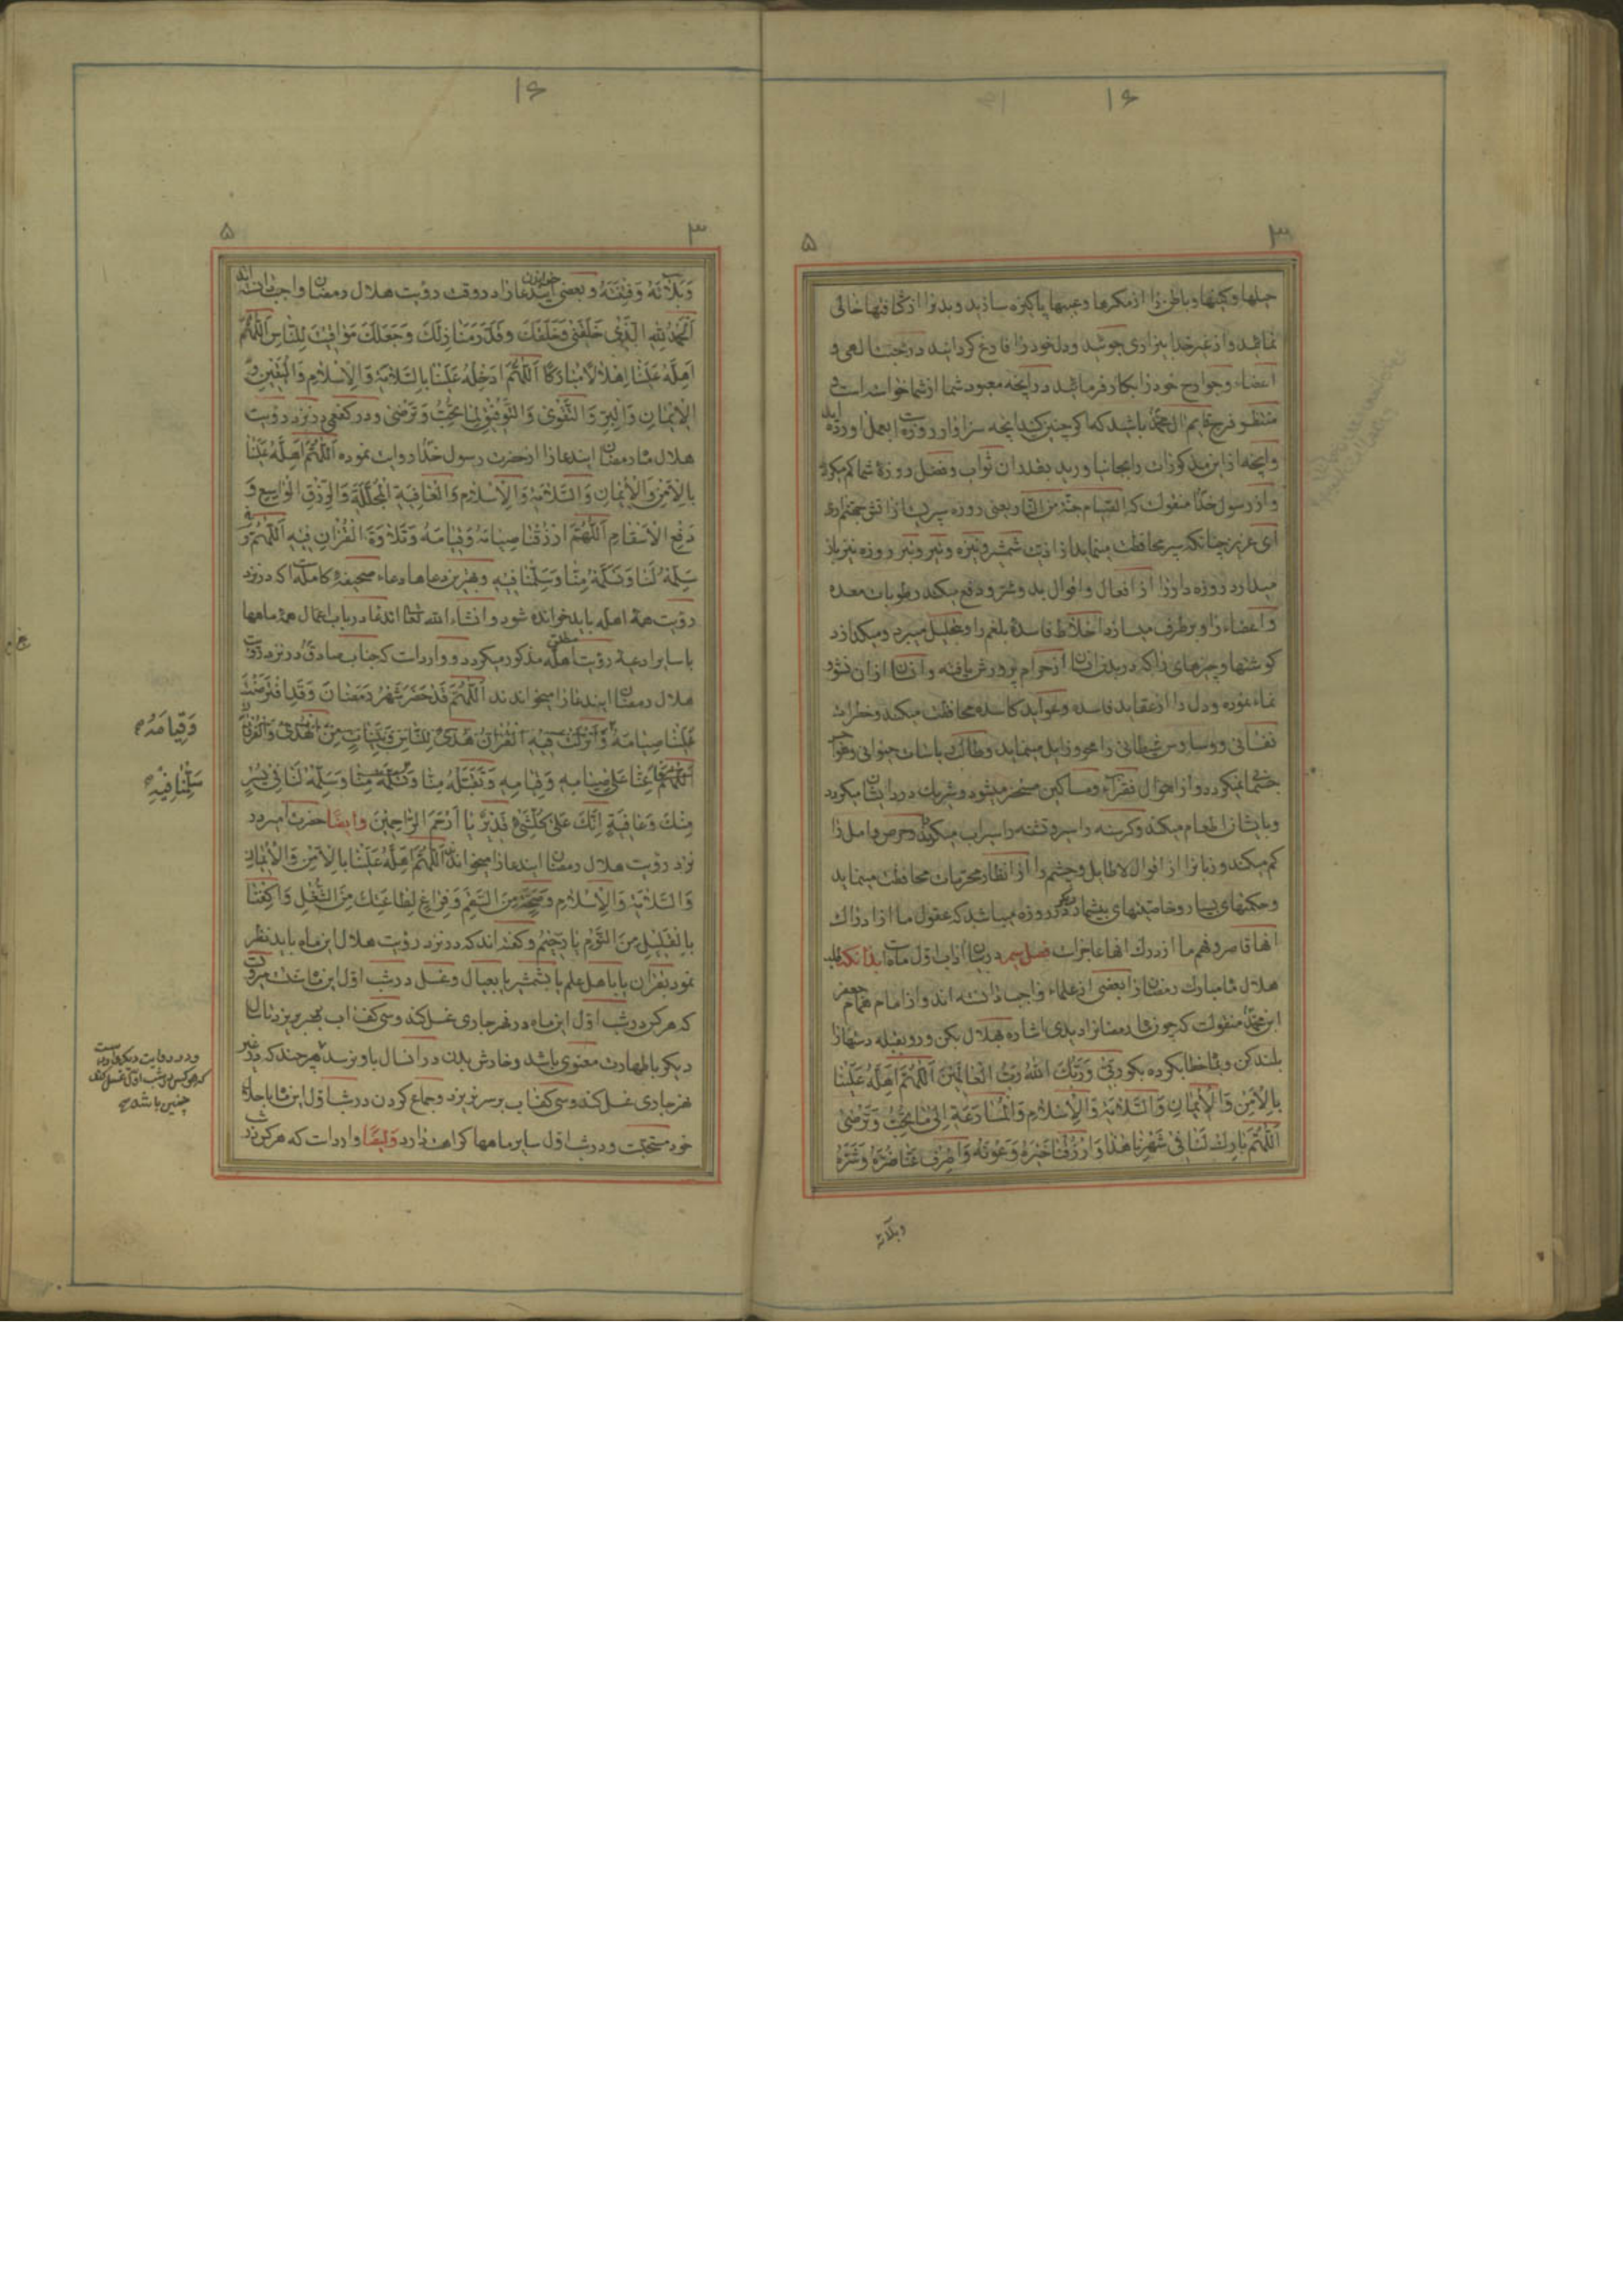 ۱۶
۳
۵
حیلها و کینها و باطن را از مکرها و عیبها پاکیزه سازید و بدنرا از کثافتها خالی
نمائید و از غیر خدا بیزاری جوئید و دل خود را فارغ گردانید در محبت الهی و
اعضاء و جوارح خود را بکار فرمائید در آنچه معبود شما از شما خواسته است و
منتظر فرج قایم آل محمد باشید که هرگاه چنین کنید آنچه سزاوار روزه است بعمل آورده اید
و آنچه از این مذکورات را بجا نیاورید بقدر آن ثواب و فضل روزهٔ شما کم میگردد
و از رسول خدا منقولست که الصیام جنة من النار یعنی روزه سپریست از آتش جهنم
ای عزیز چنانکه سپر محافظت مینماید از اذیت شمشیر و نیزه و تیر و تبر روزه نیز باز
میدارد روزه دار را از افعال و اقوال بد و شر و دفع میکند رطوبات معده
و اعضاء را و برطرف میسازد اخلاط فاسدهٔ بلغم را و تحلیل میبرد و میگدازد
گوشتها و چیزهای را که در بدن انسان از حرام پرورش یافته و از آن نشو و
نماء نموده و دل را از عقاید فاسده و عواید کاسده محافظت میکند و خطرات
نفسانی و وساوس شیطانی را محو و زایل مینماید و طالب باسات حیوانی و هوا
جسمانی میگردد و از احوال فقراء و مساکین مستخبر میشود و شریک درد ایشان میگردد
و بایشان اطعام میکند و گرسنه را سیر و تشنه را سیراب میگرداند و حرص و امل را
کم میکند و زبانرا از اقوال لاطایل و چشم را از انظار محرمات محافظت مینماید
و حکمتهای بسیار و خاصیتهای بیشمار دیگر در روزه میباشد که عقول ما از ادراک
آنها قاصر و فهم ما از درک آنها عاجز است فصل سیم در بیان آداب اول ماه است بدانکه طلب
هلال ماه مبارک رمضان را بعضی از علماء واجب دانسته اند و از امام همام جعفر
ابن محمد منقولست که چون ماه رمضانرا دیدی اشاره بهلال مکن و رو بقبله دستها را
بلند کن و بماه خطاب کرده بگو رَبّی وَرَبُّکَ اللهُ رَبُّ العالَمینَ اَللّهُمَّ اَهِلَّهُ عَلَینا
بِالاَمنِ وَالاِیمانِ وَالسَّلامَةِ وَالاِسلامِ وَالمُسارَعَةِ اِلی ما تُحِبُّ وَتَرضی
اَللّهُمَّ بارِک لَنا فی شَهرِنا هذا وَارزُقنا خَیرَهُ وَعَونَهُ وَاصرِف عَنّا ضُرَّهُ وَشَرَّهُ
وبلائه
۱۶
۳
۵
وَبَلائَهُ وَفِتنَتَهُ و بعضی خواندن ایندعا را در وقت رؤیت هلال رمضان واجب دانسته اند
اَلحَمدُ لِلّهِ الَّذی خَلَقَنی وَخَلَقَکَ وَقَدَّرَ مَنازِلَکَ وَجَعَلَکَ مَواقیتَ لِلنّاسِ اَللّهُمَّ
اَهِلَّهُ عَلَینا اِهلالاً مُبارَکاً اَللّهُمَّ اَدخِلهُ عَلَینا بِالسَّلامَةِ وَالاِسلامِ وَالیَقینِ وَ
الاِیمانِ وَالبِرِّ وَالتَّقوی وَالتَّوفیقِ لِما تُحِبُّ وَتَرضی و در کفعمی در نزد رؤیت
هلال ماه رمضان ایندعا را از حضرت رسول خدا روایت نموده اَللّهُمَّ اَهِلَّهُ عَلَینا
بِالاَمنِ وَالاِیمانِ وَالسَّلامَةِ وَالاِسلامِ وَالعافِیَةِ المُجَلَّلَةِ وَالرِّزقِ الواسِعِ وَ
دَفعِ الاَسقامِ اَللّهُمَّ ارزُقنا صِیامَهُ وَقِیامَهُ وَتِلاوَةَ القُرآنِ فیهِ اَللّهُمَّ وَ
سَلِّمهُ لَنا وَتَسَلَّمهُ مِنّا وَسَلِّمنا فیهِ و بهترین دعاها دعاء صحیفهٔ کامله است که در نزد
رؤیت همهٔ اهله باید خوانده شود و انشاء الله تعالی ایندعا در باب اعمال همهٔ ماهها
با سایر ادعیهٔ رؤیت مطلق اهله مذکور میگردد و وارد است که جناب صادق در نزد رؤیت
هلال رمضان ایندعا را میخواندند اَللّهُمَّ قَد حَضَرَ شَهرُ رَمَضانَ وَقَدِ افتَرَضتَ
عَلَینا صِیامَهُ وَاَنزَلتَ فیهِ القُرآنَ هُدیً لِلنّاسِ وَبَیِّناتٍ مِنَ الهُدی وَالفُرقانِ
اَللّهُمَّ اَعِنّا عَلی صِیامِهِ وَقِیامِهِ وَتَقَبَّلهُ مِنّا وَتَسَلَّمهُ مِنّا وَسَلِّمهُ لَنا فی یُسرٍ
مِنکَ وَعافِیَةٍ اِنَّکَ عَلی کُلِّ شَیءٍ قَدیرٌ یا اَرحَمَ الرّاحِمینَ وایضًا حضرت امیر در
نزد رؤیت هلال رمضان ایندعا را میخواند اَللّهُمَّ اَهِلَّهُ عَلَینا بِالاَمنِ وَالاِیمانِ
وَالسَّلامَةِ وَالاِسلامِ وَصِحَّةٍ مِنَ السَّقَمِ وَفَراغٍ لِطاعَتِکَ مِنَ الشُّغلِ وَاکفِنا
بِالقَلیلِ مِنَ النَّومِ یا رَحیمُ و گفته اند که در نزد رؤیت هلال این ماه باید نظر
نمود بقرآن یا باهل علم یا بشمشیر یا بعیال و غسل در شب اول این ماه سنت است مرویست
که هر کس در شب اول این ماه در نهر جاری غسل کند و سی کف آب بسر بریزد تا سال
دیگر با طهارت معنوی باشد و خارش بدن در آنسال باو نرسد هر چند که در غیر
نهر جاری غسل کند و سی کف آب بر سر نریزد و جماع کردن در شب اول این ماه با حلال
خود مستحبست و در شب اول سایر ماهها کراهت دارد وایضًا وارد است که هر کس در شب
وَقِیامَهُ
سَلِّمنا فیهِ
و در روایت دیگر وارد است
که هر کس در شب اول غسل کند
چنین باشد